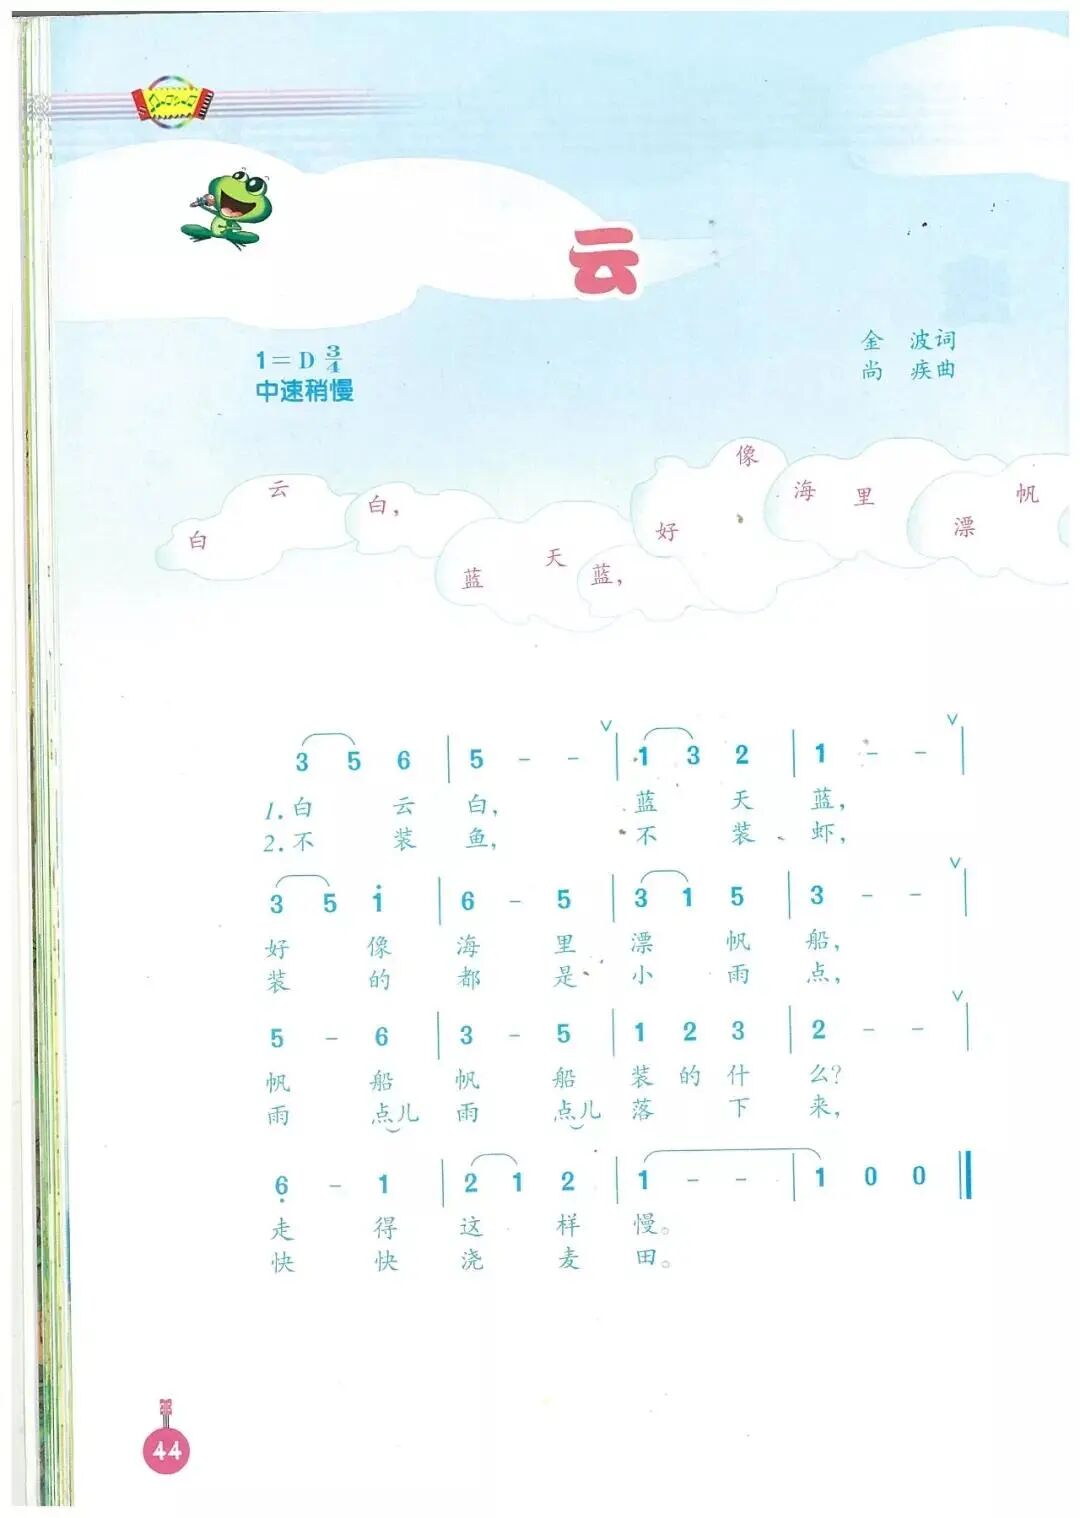 云
1=D 3/4
中速稍慢
金 波词
尚 疾曲
白 云 白， 蓝 天 蓝， 好 像 海 里 漂 帆
3 5 6 | 5 - - ∨ | 1 3 2 | 1 - - ∨ |
1.白 云 白， 蓝 天 蓝，
2.不 装 鱼， 不 装 虾，
3 5 1̇ | 6 - 5 | 3 1 5 | 3 - - ∨ |
好 像 海 里 漂 帆 船，
装 的 都 是 小 雨 点，
5 - 6 | 3 - 5 | 1 2 3 | 2 - - ∨ |
帆 船 帆 船 装 的 什 么？
雨 点儿 雨 点儿 落 下 来，
6̣ - 1 | 2 1 2 | 1 - - | 1 0 0 ‖
走 得 这 样 慢。
快 快 浇 麦 田。
44